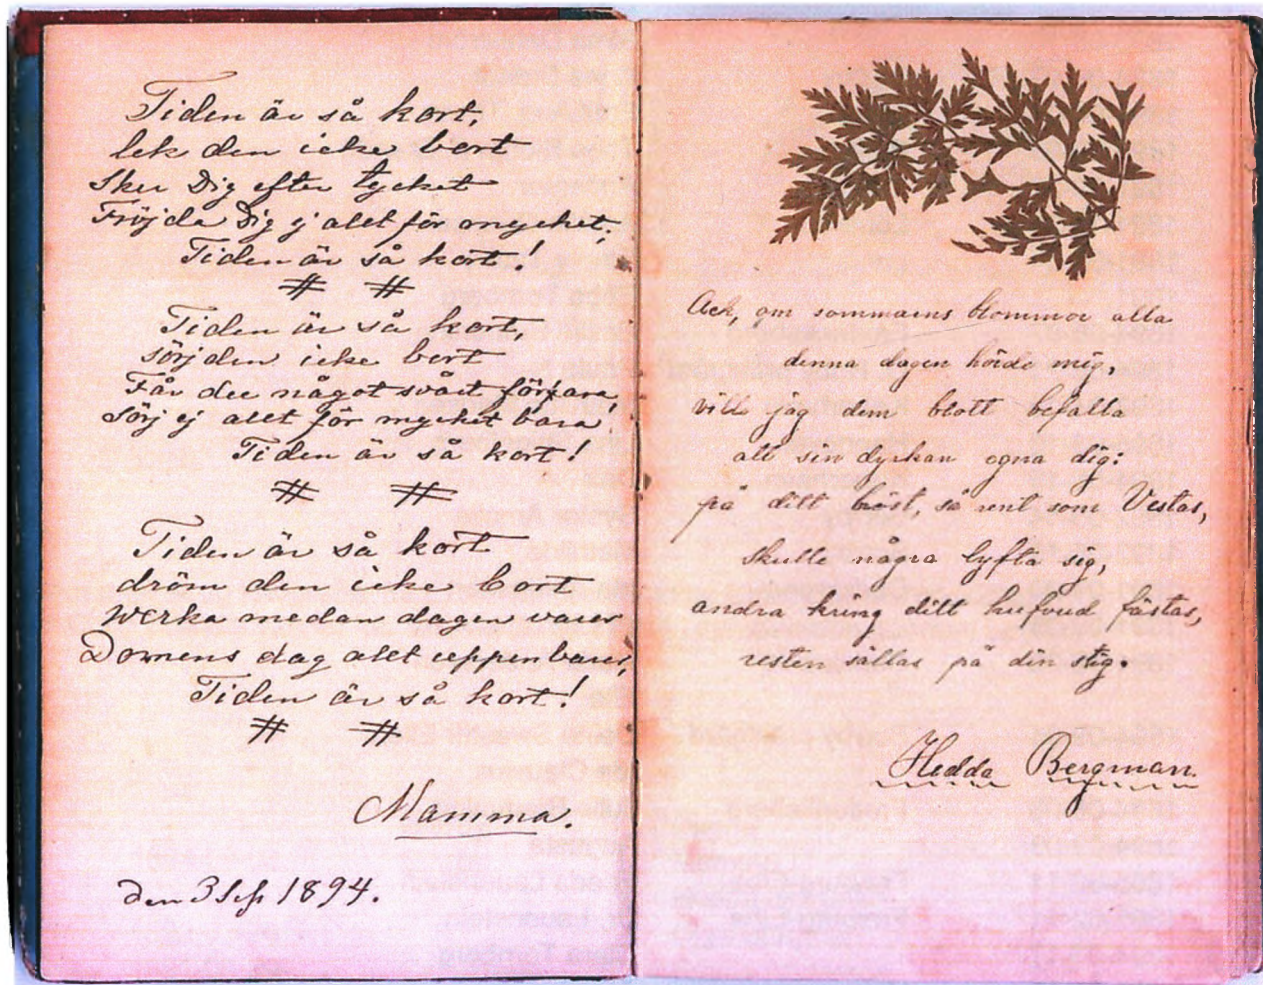 Tiden är så kort,
lek den icke bort
Sker Dig efter tycket
Fröjda Dig ej allt för mycket,
Tiden är så kort!
# #
Tiden är så kort,
sörj den icke bort
Får du något svårt förfara,
Sörj ej allt för mycket bara
Tiden är så kort!
# #
Tiden är så kort
dröm den icke bort
Werka medan dagen varar
Domens dag allt uppenbarar,
Tiden är så kort!
# #
Mamma.
den 3 Sep 1894.
Ack, om sommarns blommor alla
denna dagen hörde mig,
ville jag dem blott befalla
all sin dyrkan egna dig:
på ditt bröst, så rent som Vestas,
skulle några lyfta sig,
andra kring ditt hufvud fästas,
resten sållas på din stig.
Hedda Bergman.